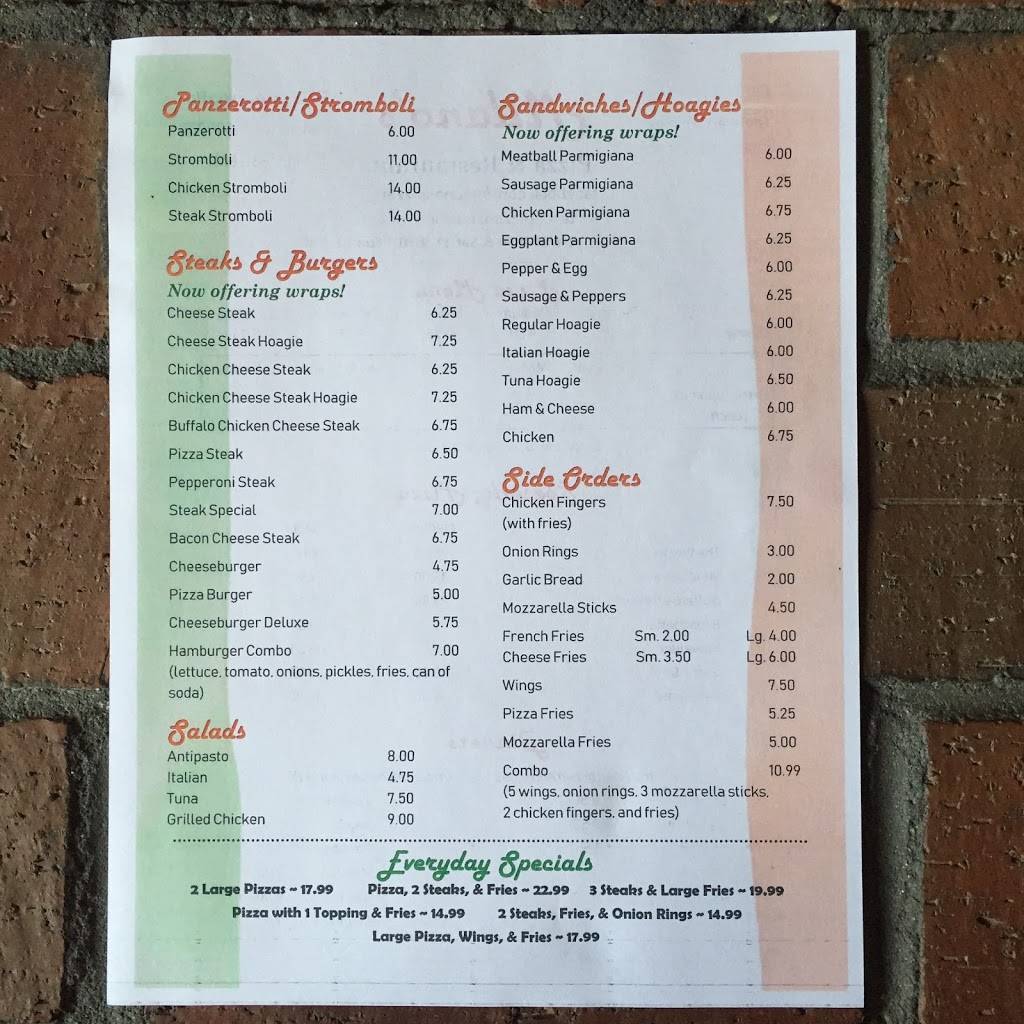 Panzerotti/Stromboli
Panzerotti 6.00
Stromboli 11.00
Chicken Stromboli 14.00
Steak Stromboli 14.00
Steaks & Burgers
Now offering wraps!
Cheese Steak 6.25
Cheese Steak Hoagie 7.25
Chicken Cheese Steak 6.25
Chicken Cheese Steak Hoagie 7.25
Buffalo Chicken Cheese Steak 6.75
Pizza Steak 6.50
Pepperoni Steak 6.75
Steak Special 7.00
Bacon Cheese Steak 6.75
Cheeseburger 4.75
Pizza Burger 5.00
Cheeseburger Deluxe 5.75
Hamburger Combo 7.00
(lettuce, tomato, onions, pickles, fries, can of
soda)
Salads
Antipasto 8.00
Italian 4.75
Tuna 7.50
Grilled Chicken 9.00
Sandwiches/Hoagies
Now offering wraps!
Meatball Parmigiana 6.00
Sausage Parmigiana 6.25
Chicken Parmigiana 6.75
Eggplant Parmigiana 6.25
Pepper & Egg 6.00
Sausage & Peppers 6.25
Regular Hoagie 6.00
Italian Hoagie 6.00
Tuna Hoagie 6.50
Ham & Cheese 6.00
Chicken 6.75
Side Orders
Chicken Fingers 7.50
(with fries)
Onion Rings 3.00
Garlic Bread 2.00
Mozzarella Sticks 4.50
French Fries Sm. 2.00 Lg. 4.00
Cheese Fries Sm. 3.50 Lg. 6.00
Wings 7.50
Pizza Fries 5.25
Mozzarella Fries 5.00
Combo 10.99
(5 wings, onion rings, 3 mozzarella sticks,
2 chicken fingers, and fries)
Everyday Specials
2 Large Pizzas ~ 17.99 Pizza, 2 Steaks, & Fries ~ 22.99 3 Steaks & Large Fries ~ 19.99
Pizza with 1 Topping & Fries ~ 14.99 2 Steaks, Fries, & Onion Rings ~ 14.99
Large Pizza, Wings, & Fries ~ 17.99